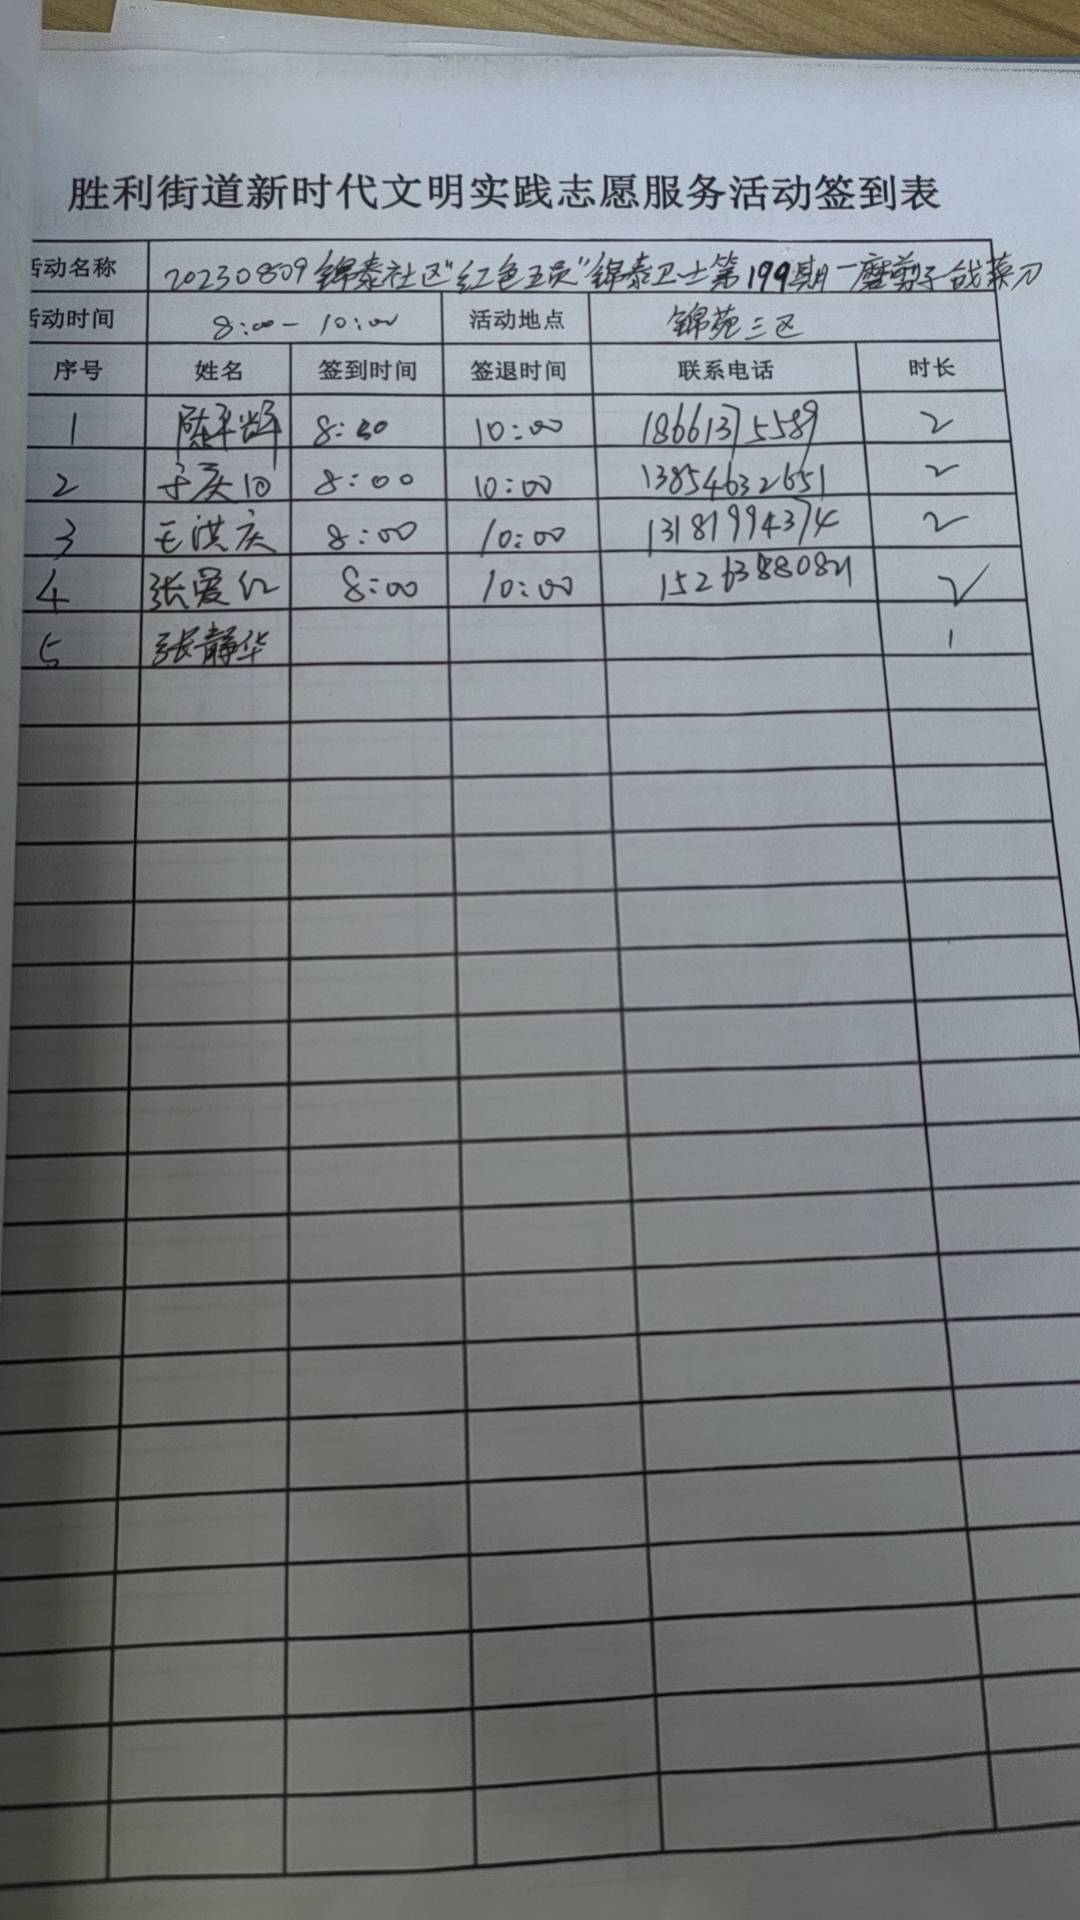 胜利街道新时代文明实践志愿服务活动签到表
活动名称 20230809锦泰社区"红色五员"锦泰卫士第199期一磨剪子戗菜刀
活动时间 8:00-10:00 活动地点 锦苑三区
序号 姓名 签到时间 签退时间 联系电话 时长
1 陈 8:00 10:00 18661375589 2
2 于庆 8:00 10:00 13854632651 2
3 王洪庆 8:00 10:00 13181994374 2
4 张爱红 8:00 10:00 15263880821 2
5 张静华 1